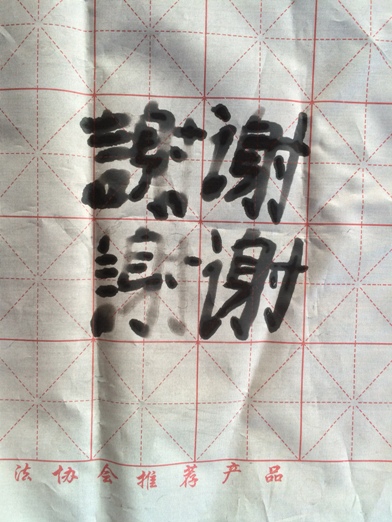 謝谢
謝谢
法协会推荐产品